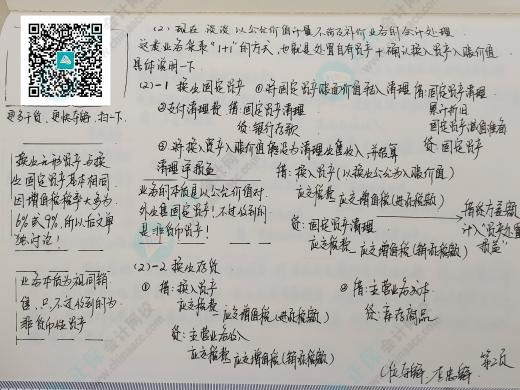 (2) 现在谈谈以公允价值计量不涉及补价业务的会计处理
这类业务我来"1+1"的方式,也就是处置自有资产+确认换入资产入账价值
具体说明一下
更多干货,更快与师,扫一下
(2)-1 换出固定资产 ①将固定资产账面价值转入清理 借:固定资产清理
累计折旧
固定资产减值准备
贷:固定资产
②支付清理费 借:固定资产清理
贷:银行存款
③将换入资产入账价值确认为清理收入,并结算
清理净损益
借:换入资产(以换出公允为入账价值)
应交税费 应交增值税(进项税额)
贷:固定资产清理
应交税费 应交增值税(销项税额)
借贷方差额
计入"资产处置
损益"
换出无形资产与换
出固定资产基本相同
因增值税税率大多为
6%或9%,所以后文单
独讨论!
业务本质是以公允价值对
外出售固定资产!不过收到的
是非货币资产!
(2)-2 换出存货
① 借:换入资产
应交税费 应交增值税(进项税额)
贷:主营业务收入
应交税费 应交增值税(销项税额)
② 借:主营业务成本
贷:库存商品
业务本质为视同销
售,只不过收到的为
非货币性资产
第2页